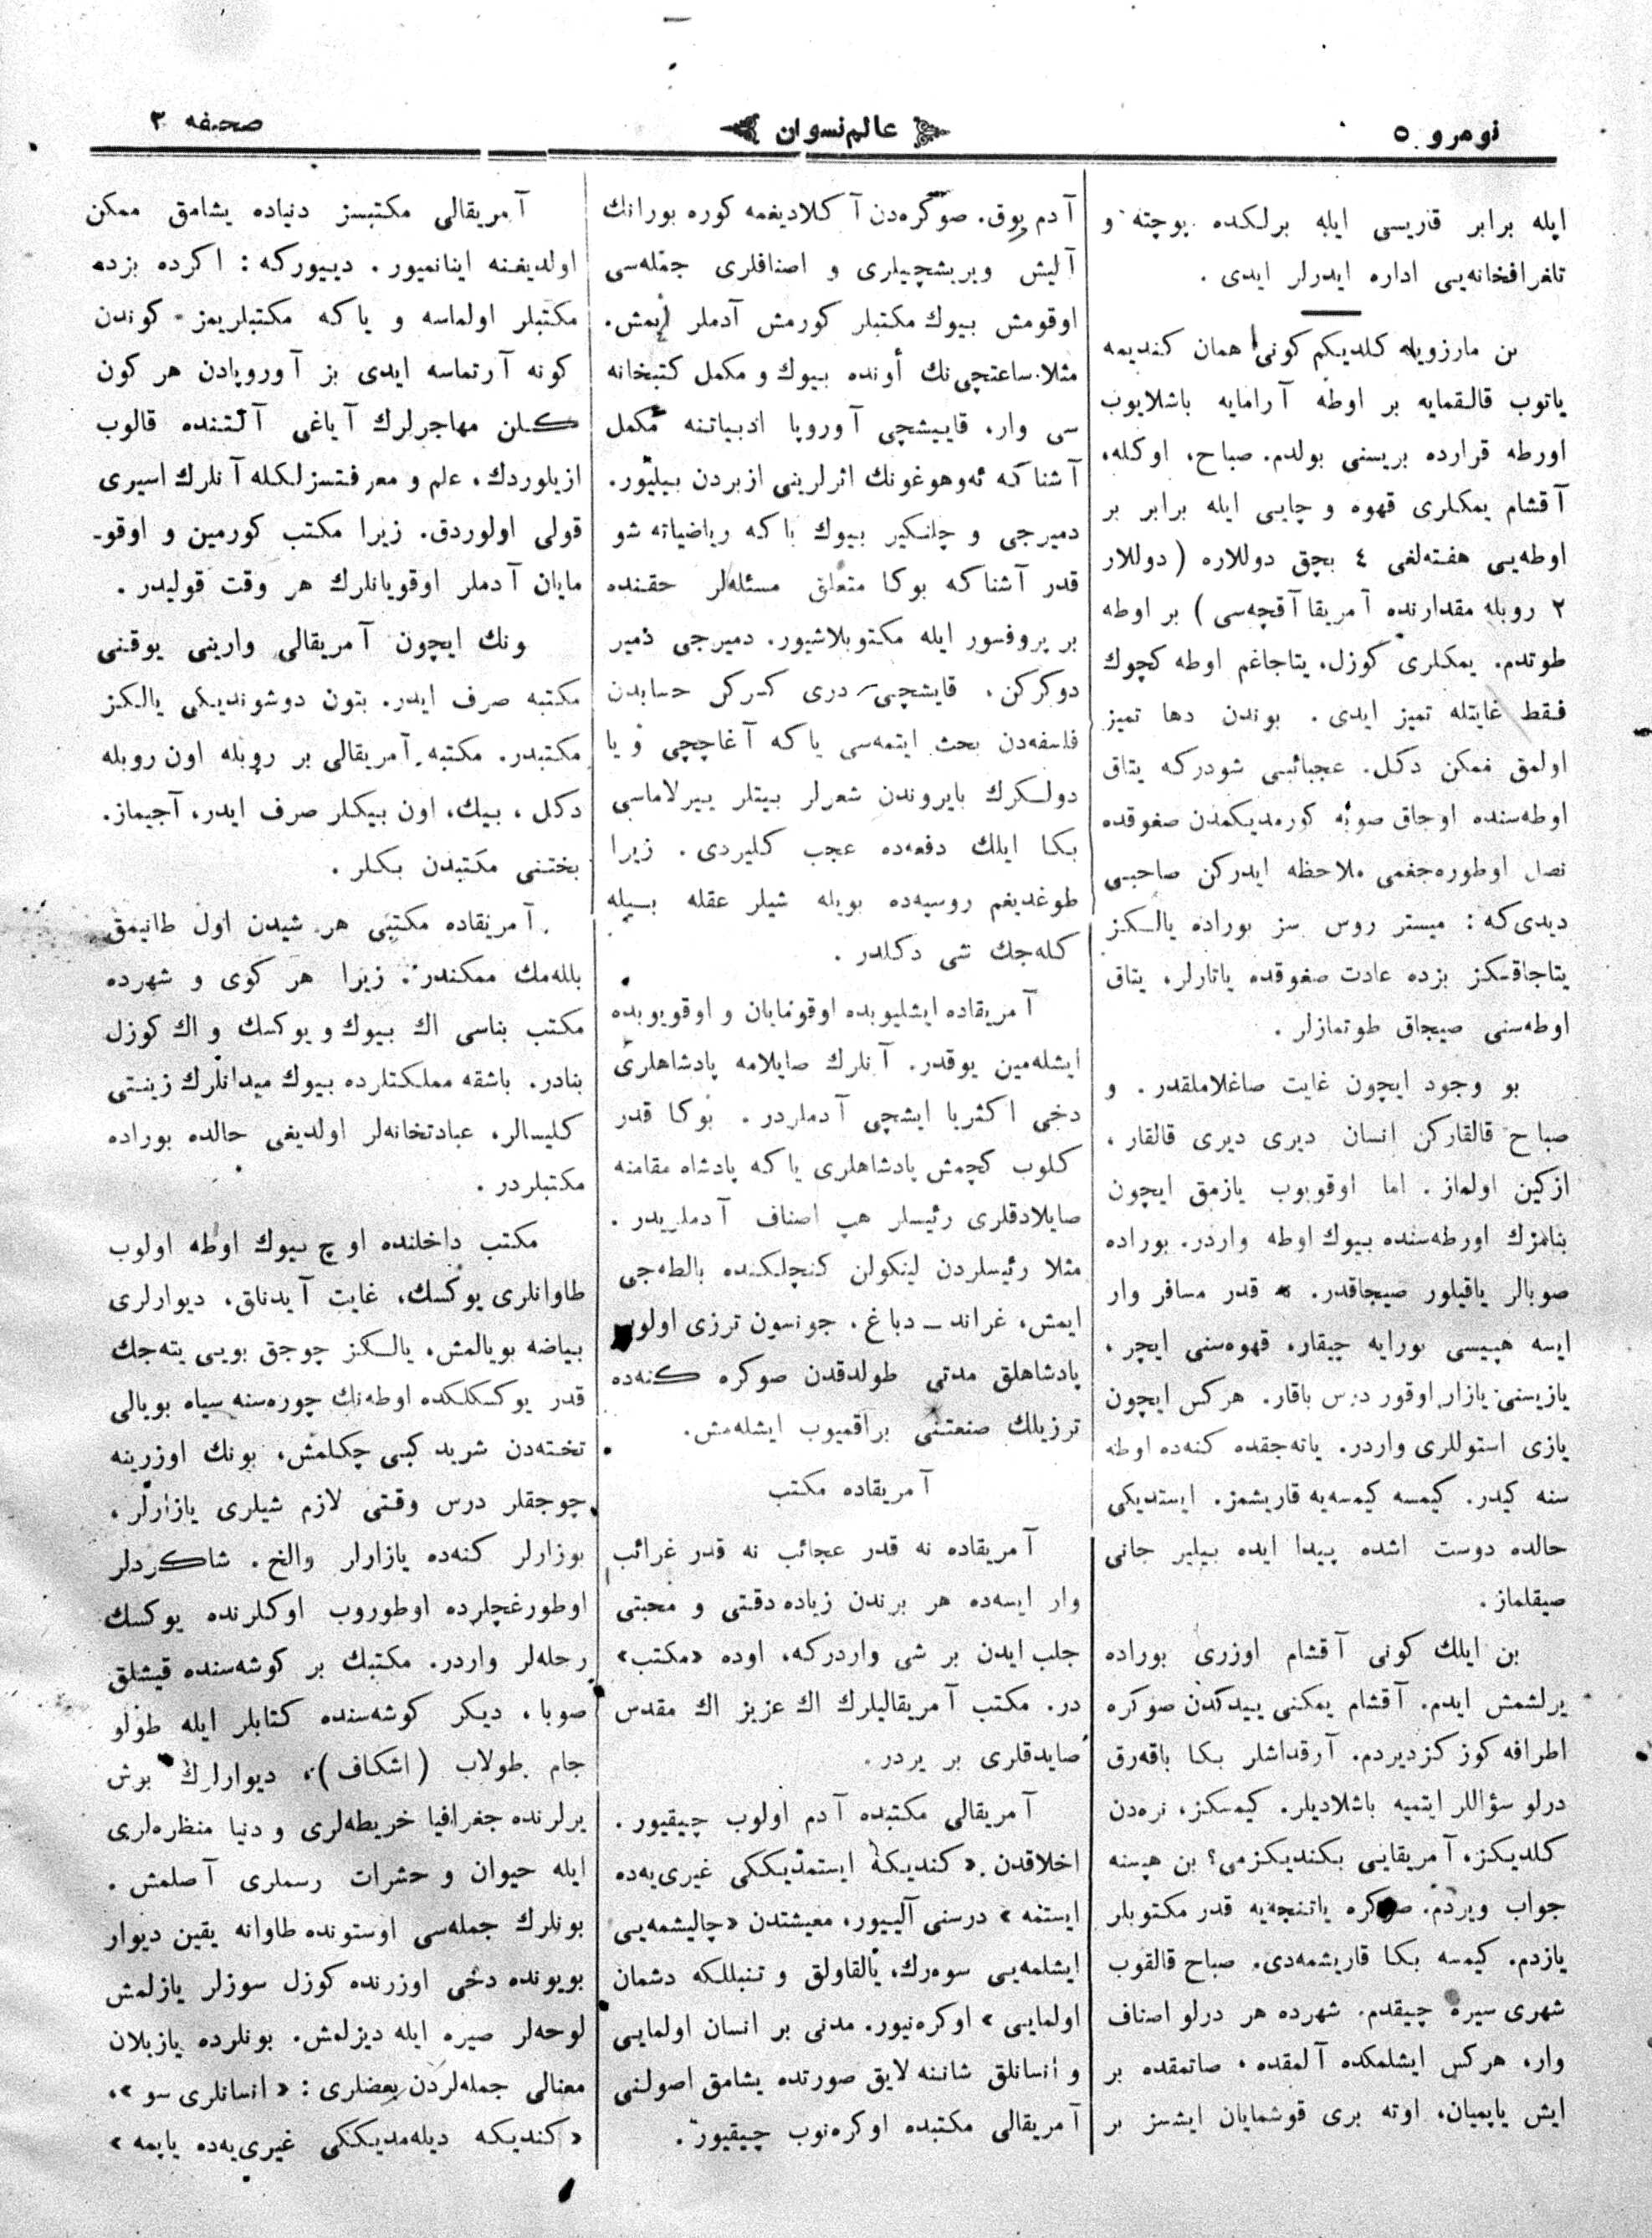 نومرو ٥
عالم نسوان
صحفه ٣
ايله برابر قاريسى ايله برلكده پوچته و
تلغرافخانه‌يى اداره ايدرلر ايدى .
بن مارزويله كلديكم كونى همان كنديمه
ياتوب قالقمايه بر اوطه آرامايه باشلايوب
اورطه قرارده بريسنى بولدم. صباح، اوكله،
آقشام يمكلرى قهوه و چايى ايله برابر بر
اوطه‌يى هفته‌لغى ٤ بچق دوللاره (دوللار
٢ روبله مقدارنده آمريقا آقچه‌سى) بر اوطه
طوتدم. يمكلرى كوزل، يتاجاغم اوطه كچوك
فقط غايتله تميز ايدى. بوندن دها تميز
اولمق ممكن دكل. عجبائبى شودركه يتاق
اوطه‌سنده اوجاق صوبه كورمديكمدن صغوقده
نصل اوطوره‌جغمى ملاحظه ايدركن صاحبى
ديدى‌كه: ميستر روس سز بوراده يالكز
يتاجاقسكز بزده عادت صغوقده ياتارلر، يتاق
اوطه‌سنى صيجاق طوتمازلر .
بو وجود ايچون غايت صاغلاملقدر . و
صباح قالقاركن انسان ديرى ديرى قالقار ،
ازكين اولماز . اما اوقويوب يازمق ايچون
بنامزك اورطه‌سنده بيوك اوطه واردر. بوراده
صوبالر ياقيلور صيجاقدر. نه قدر مسافر وار
ايسه هپيسى بورايه چيقار، قهوه‌سنى ايچر ،
يازيسنى يازار اوقور درس باقار. هركس ايچون
يازى استوللرى واردر. ياته‌جقده كنه‌ده اوطه
سنه كيدر. كيمسه كيمسه‌يه قاريشمز. ايستديكى
حالده دوست اشده پيدا ايده بيلير جانى
صيقلماز .
بن ايلك كونى آقشام اوزرى بوراده
يرلشمش ايدم. آقشام يمكنى ييدكدن صوكره
اطرافه كوز كزديردم. آرقداشلر بكا باقه‌رق
درلو سؤاللر ايتميه باشلاديلر. كيمسكز، نره‌دن
كلديكز، آمريقايى بكنديكزمى؟ بن هپسنه
جواب ويردم. صوكره ياتنجه‌يه قدر مكتوبلر
يازدم. كيمسه بكا قاريشمه‌دى. صباح قالقوب
شهرى سيره چيقدم. شهرده هر درلو اصناف
وار، هركس ايشلمكده آلمقده، صاتمقده بر
ايش ياپميان، اوته برى قوشمايان ايشسز بر
آدم يوق. صوكره‌دن آكلاديغمه كوره بورانك
آليش ويريشچيلرى و اصنافلرى جمله‌سى
اوقومش بيوك مكتبلر كورمش آدملر ايمش.
مثلا. ساعتچى‌نك أونده بيوك و مكمل كتبخانه
سى وار، قاييشچى آوروپا ادبياتنه مكمل
آشناكه ئه‌وهوغونك اثرلرينى ازبردن بيليور.
دميرجى و چلنكير بيوك ياكه رياضياته شو
قدر آشناكه بوكا متعلق مسئله‌لر حقنده
بر پروفسور ايله مكتوبلاشيور. دميرجى دمير
دوكركن، قايشچى درى كسركن حسابدن
فلسفه‌دن بحث ايتمه‌سى ياكه آغاچچى و يا
دولكرك بايروندن شعرلر بيتلر ييرلاماسى
بكا ايلك دفعه‌ده عجب كليردى. زيرا
طوغديغم روسيه‌ده بويله شيلر عقله بيله
كله‌جك شى دكلدر .
آمريقاده ايشليوبده اوقومايان و اوقويوبده
ايشله‌مين يوقدر. آنلرك صايلامه پادشاهلرى
دخى اكثريا ايشچى آدملردر. بوكا قدر
كلوب كچمش پادشاهلرى ياكه پادشاه مقامنه
صايلادقلرى رئيسلر هپ اصناف آدملريدر.
مثلا رئيسلردن لينكولن كنچلكنده بالطه‌جى
ايمش، غراند ـ دباغ، جونسون ترزى اولوب
پادشاهلق مدتى طولدقدن صوكره كنه‌ده
ترزيلك صنعتنى براقميوب ايشله‌مش.
آمريقاده مكتب
آمريقاده نه قدر عجائب نه قدر غرائب
وار ايسه‌ده هر برندن زياده دقتى و محبتى
جلب ايدن بر شى واردركه، اوده «مكتب»
در. مكتب آمريقاليلرك اك عزيز اك مقدس
صايدقلرى بر يردر.
آمريقالى مكتبده آدم اولوب چيقيور.
اخلاقدن «كنديكه ايستمديككى غيرى‌يه‌ده
ايستمه» درسنى آلييور، معيشتدن «چاليشمه‌يى
ايشلمه‌يى سوه‌رك، يالقاولق و تنبللكه دشمان
اولمايى» اوكره‌نيور. مدنى بر انسان اولمايى
و انسانلق شاننه لايق صورتده يشامق اصولنى
آمريقالى مكتبده اوكره‌نوب چيقيور.
آمريقالى مكتبسز دنياده يشامق ممكن
اولديغنه اينانميور. دييوركه: اكرده بزده
مكتبلر اولماسه و ياكه مكتبلريمز كوندن
كونه آرتماسه ايدى بز آوروپادن هر كون
كلن مهاجرلرك آياغى آلتنده قالوب
ازيلوردك، علم و معرفتسزلكله آنلرك اسيرى
قولى اولوردق. زيرا مكتب كورمين و اوقوـ
مايان آدملر اوقويانلرك هر وقت قوليدر.
ونك ايچون آمريقالى وارينى يوقنى
مكتبه صرف ايدر. بتون دوشونديكى يالكز
مكتبدر. مكتبه آمريقالى بر روبله اون روبله
دكل، بيك، اون بيكلر صرف ايدر، آجيماز.
بختنى مكتبدن بكلر.
آمريقاده مكتبى هر شيدن اول طانيمق
بلله‌مك ممكندر. زيرا هر كوى و شهرده
مكتب بناسى اك بيوك و يوكسك و اك كوزل
بنادر. باشقه مملكتلرده بيوك ميدانلرك زينتى
كليسالر، عبادتخانه‌لر اولديغى حالده بوراده
مكتبلردر.
مكتب داخلنده اوچ بيوك اوطه اولوب
طاوانلرى يوكسك، غايت آيدناق، ديوارلرى
بياضه بويالمش، يالكز چوجق بويى يته‌جك
قدر يوكسكلكده اوطه‌نك چوره‌سنه سياه بويالى
تخته‌دن شريد كبى چكلمش، بونك اوزرينه
چوجقلر درس وقتى لازم شيلرى يازارلر،
بوزارلر كنه‌ده يازارلر والخ. شاكردلر
اوطورغچلرده اوطوروب اوكلرنده يوكسك
رحله‌لر واردر. مكتبك بر كوشه‌سنده قيشلق
صوبا، ديكر كوشه‌سنده كتابلر ايله طولو
جام طولاب (اشكاف)، ديوارلرك بوش
يرلرنده جغرافيا خريطه‌لرى و دنيا منظره‌لرى
ايله حيوان و حشرات رسملرى آصلمش.
بونلرك جمله‌سى اوستونده طاوانه يقين ديوار
بويونده دخى اوزرنده كوزل سوزلر يازلمش
لوحه‌لر صيره ايله ديزلمش. بونلرده يازيلان
معنالى جمله‌لردن بعضلرى: «انسانلرى سو»،
«كنديكه ديله‌مديككى غيرى‌يه‌ده ياپمه»